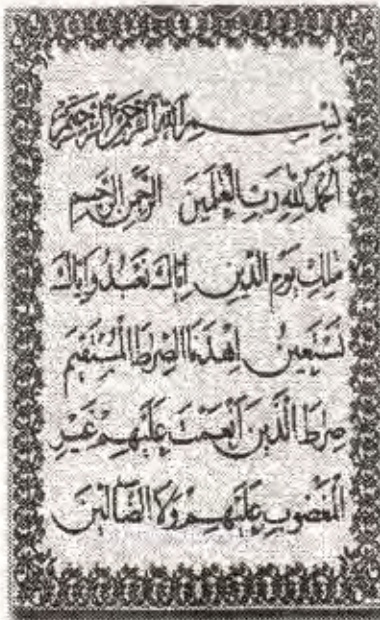 بسم الله الرحمن الرحيم
الحمد لله رب العلمين الرحمن الرحيم
ملك يوم الدين اياك نعبد واياك
نستعين اهدنا الصراط المستقيم
صراط الذين انعمت عليهم غير
المغضوب عليهم ولا الضالين